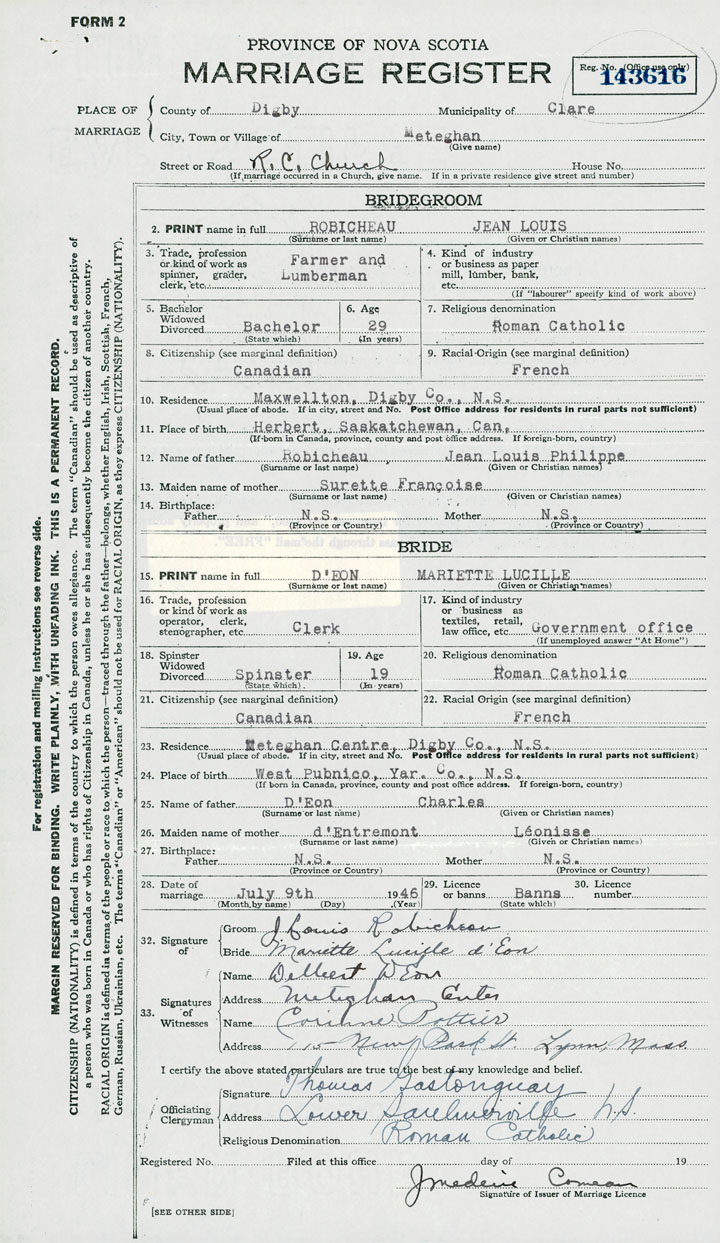 FORM 2
PROVINCE OF NOVA SCOTIA
MARRIAGE REGISTER
Reg. No. (Office use only)
143616
PLACE OF MARRIAGE
County of Digby Municipality of Clare
City, Town or Village of Meteghan
(Give name)
Street or Road R. C. Church House No.
(If marriage occurred in a Church, give name. If in a private residence give street and number)
BRIDEGROOM
2. PRINT name in full ROBICHEAU JEAN LOUIS
(Surname or last name) (Given or Christian names)
3. Trade, profession or kind of work as spinner, grader, clerk, etc. Farmer and Lumberman
4. Kind of industry or business as paper mill, lumber, bank, etc.
(If "labourer" specify kind of work above)
5. Bachelor Widowed Divorced Bachelor
(State which)
6. Age 29
(In years)
7. Religious denomination
Roman Catholic
8. Citizenship (see marginal definition)
Canadian
9. Racial Origin (see marginal definition)
French
10. Residence Maxwellton, Digby Co., N.S.
(Usual place of abode. If in city, street and No. Post Office address for residents in rural parts not sufficient)
11. Place of birth Herbert, Saskatchewan, Can,
(If born in Canada, province, county and post office address. If foreign-born, country)
12. Name of father Robicheau Jean Louis Philippe
(Surname or last name) (Given or Christian names)
13. Maiden name of mother Surette Françoise
(Surname or last name) (Given or Christian names)
14. Birthplace:
Father N.S. Mother N.S.
(Province or Country) (Province or Country)
BRIDE
15. PRINT name in full D'EON MARIETTE LUCILLE
(Surname or last name) (Given or Christian names)
16. Trade, profession or kind of work as operator, clerk, stenographer, etc. Clerk
17. Kind of industry or business as textiles, retail, law office, etc. Government office
(If unemployed answer "At Home")
18. Spinster Widowed Divorced Spinster
(State which)
19. Age 19
(In years)
20. Religious denomination
Roman Catholic
21. Citizenship (see marginal definition)
Canadian
22. Racial Origin (see marginal definition)
French
23. Residence Meteghan Centre, Digby Co., N.S.
(Usual place of abode. If in city, street and No. Post Office address for residents in rural parts not sufficient)
24. Place of birth West Pubnico, Yar. Co., N.S.
(If born in Canada, province, county and post office address. If foreign-born, country)
25. Name of father D'Eon Charles
(Surname or last name) (Given or Christian names)
26. Maiden name of mother d'Entremont Léonisse
(Surname or last name) (Given or Christian names)
27. Birthplace:
Father N.S. Mother N.S.
(Province or Country) (Province or Country)
28. Date of marriage July 9th 1946
(Month by name) (Day) (Year)
29. Licence or banns Banns
(State which)
30. Licence number
32. Signature of
Groom J Louis Robicheau
Bride Mariette Lucille d'Eon
33. Signatures of Witnesses
Name Delbert D'Eon
Address Meteghan Center
Name Corinne Pottier
Address Park St. Lynn, Mass.
I certify the above stated particulars are true to the best of my knowledge and belief.
Officiating Clergyman
Signature Thomas Gastonguay
Address Lower Saulnierville N.S.
Religious Denomination Roman Catholic
Registered No. Filed at this office day of 19
Comeau
Signature of Issuer of Marriage Licence
[SEE OTHER SIDE]
For registration and mailing instructions see reverse side.
MARGIN RESERVED FOR BINDING. WRITE PLAINLY, WITH UNFADING INK. THIS IS A PERMANENT RECORD.
CITIZENSHIP (NATIONALITY) is defined in terms of the country to which the person owes allegiance. The term "Canadian" should be used as descriptive of
a person who was born in Canada or who has rights of Citizenship in Canada, unless he or she has subsequently become the citizen of another country.
RACIAL ORIGIN is defined in terms of the people or race to which the person—traced through the father—belongs, whether English, Irish, Scottish, French,
German, Russian, Ukrainian, etc. The terms "Canadian" or "American" should not be used for RACIAL ORIGIN, as they express CITIZENSHIP (NATIONALITY).